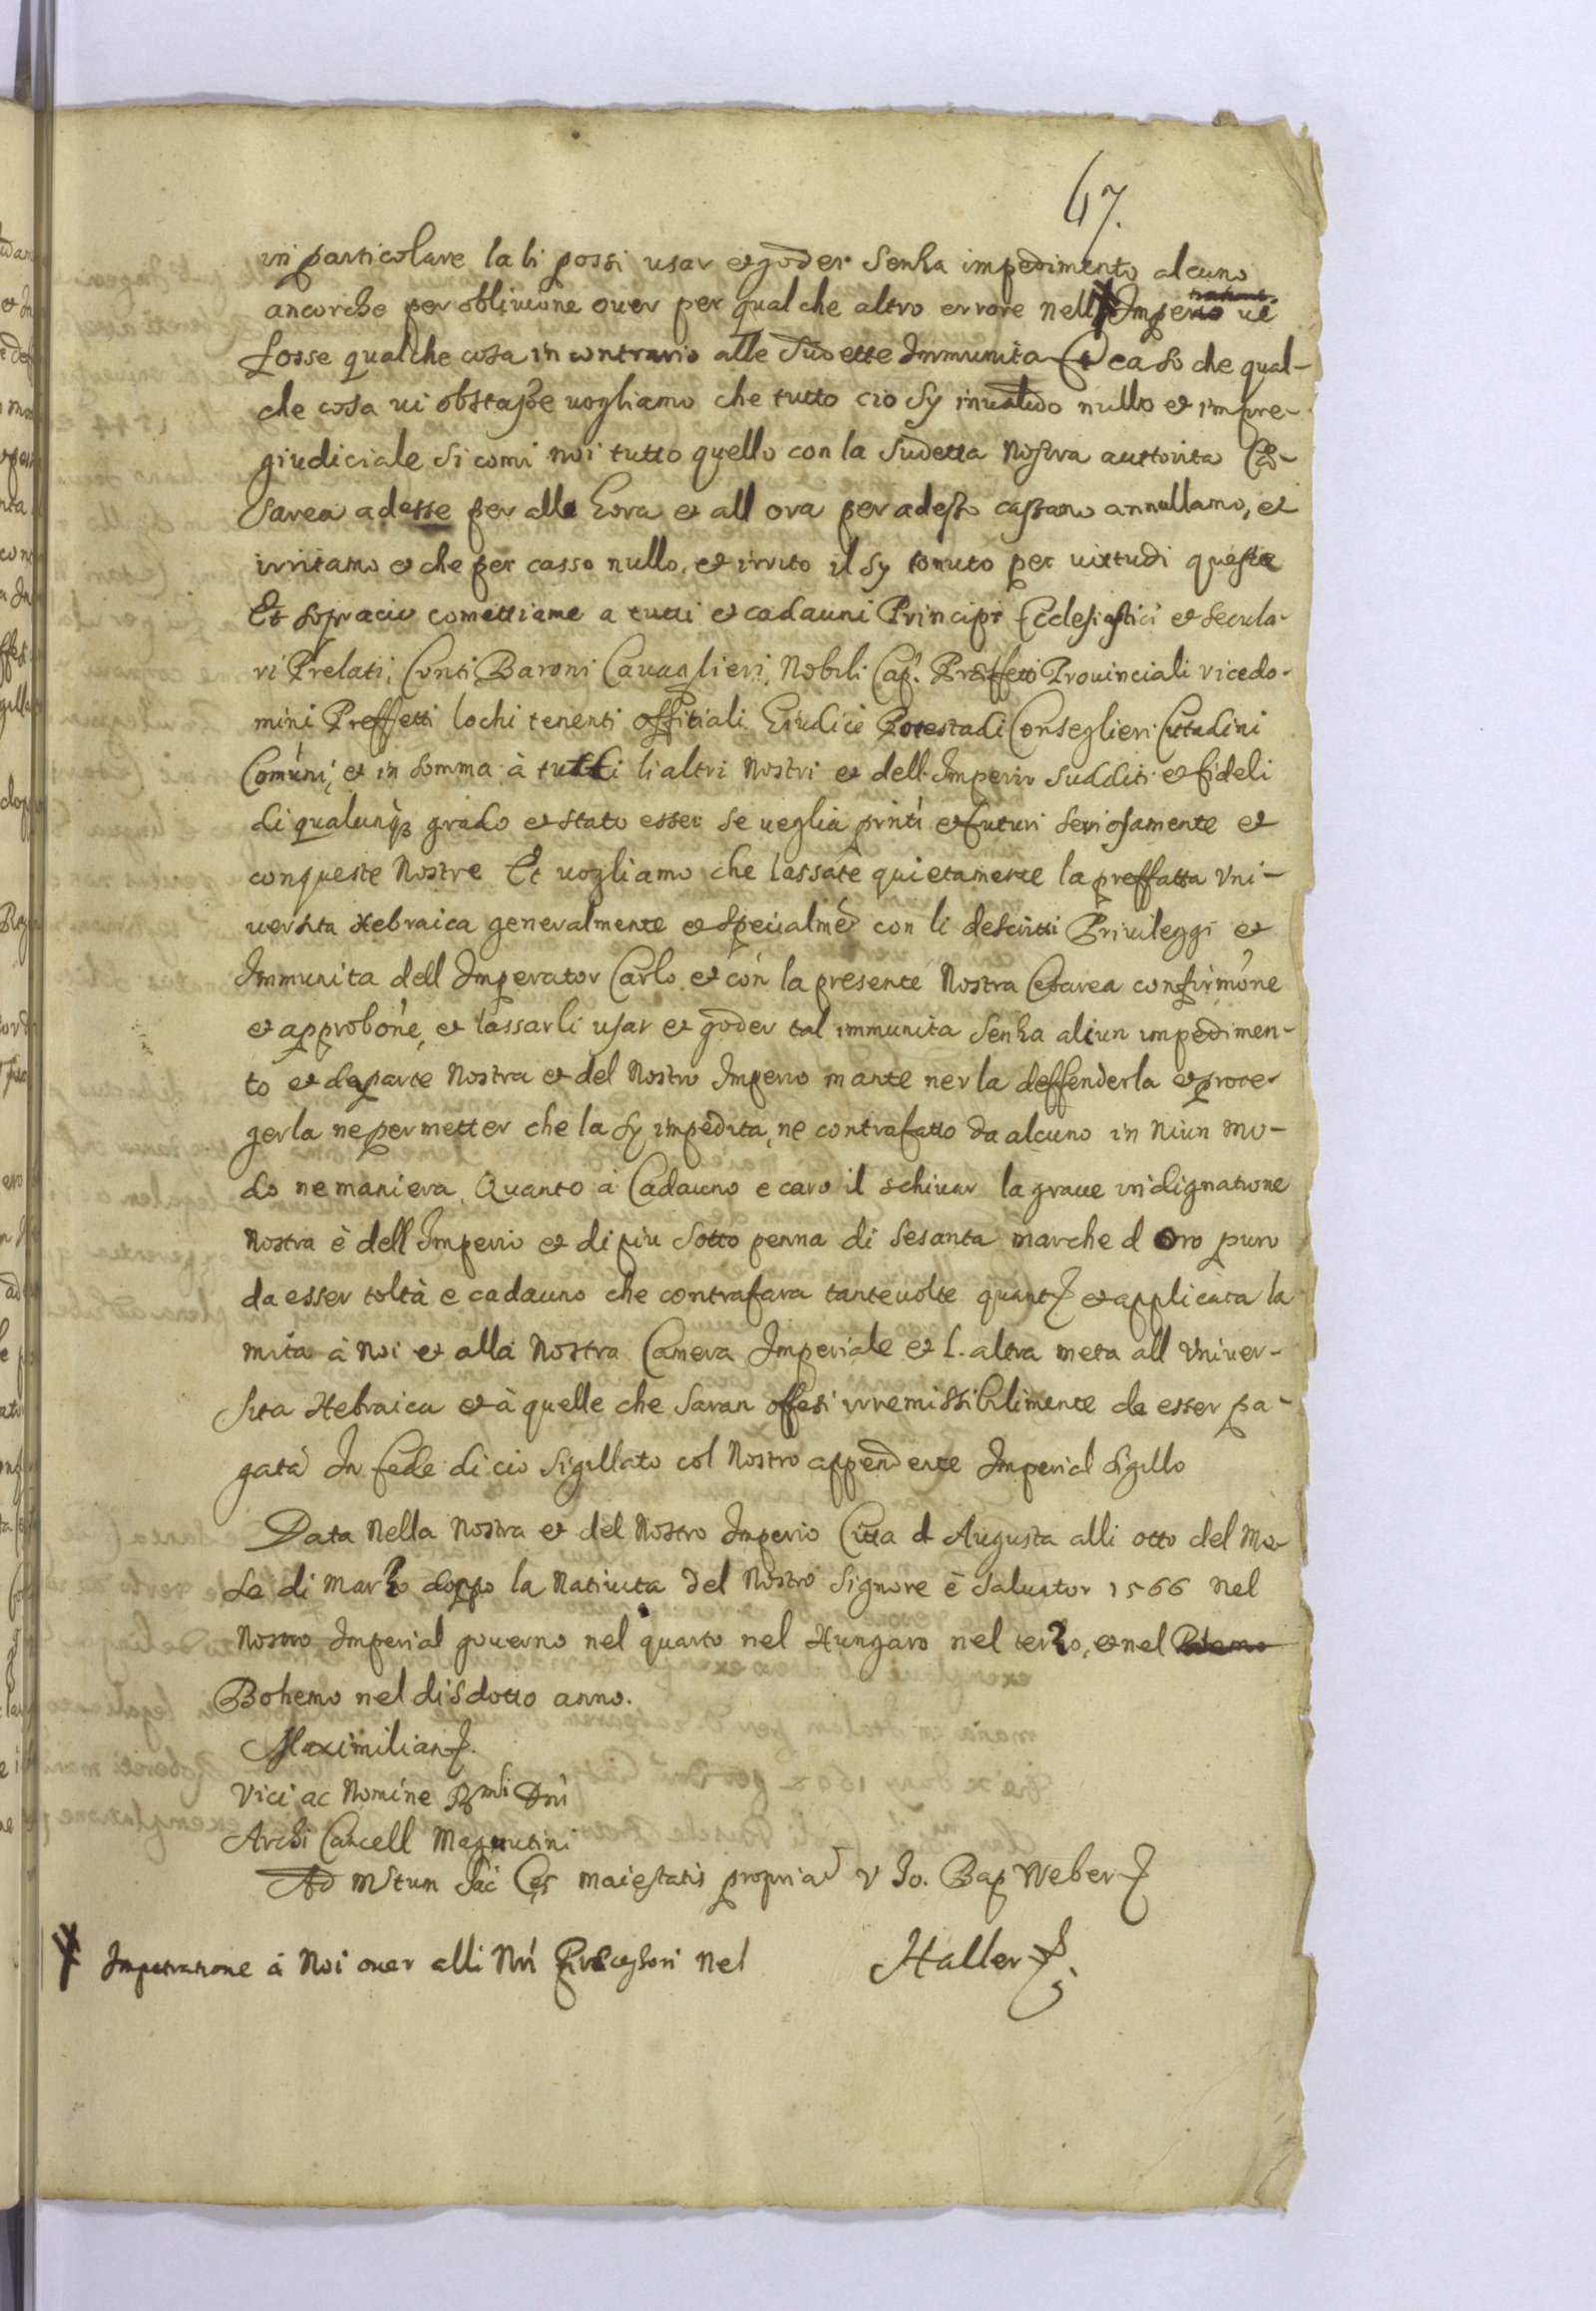 47.
in particolare la li possi usar et goder senza impedimento alcuno
ancorche per oblivione over per qualche altro errore nell Imperio vi
fosse qualche cosa in contrario alle sudette Immunita et caso che qual-
che cosa vi obstasse vogliamo che tutto cio sy invalido nullo et impre-
giudiciale si comi noi tutto quello con la sudetta Nostra auttorita Ce-
sarea adesse per alle hora et all ora per adesso cassamo annullamo, et
irritamo et che per casso nullo, et irrito il sy tenuto per virtu di queste
Et sopra cio comettiame a tutti et cadauni Principi Ecclesiastici et secula-
ri Prelati, Conti Baroni Cavaglieri, Nobili Cap. Preffeti Provinciali vicedo-
mini Preffetti lochi tenenti offitiali Giudici Potestadi Conseglieri Cittadini
Comuni, et in somma à tutti li altri Nostri et dell Imperio sudditi et fideli
di qualunq3 grado et stato esser se veglia pnti et futuri seriosamente et
con queste Nostre Et vogliamo che lassate quietamente la preffatta Vni-
versita Hebraica generalmente et specialmè con li descritti Privileggi et
Immunita dell Imperator Carlo et con la presente Nostra Cesarea confirmòne
et approbòne, et lassarli usar et goder tal immunita senza alcun impedimen-
to et da parte Nostra et del Nostro Imperio mante nerla deffenderla et prote-
gerla ne permetter che la sy impedita, ne contrafatto da alcuno in niun mo-
do ne maniera. Quanto à Cadauno e caro il schivar la grave indignatione
Nostra è dell Imperio et di piu sotto penna di sesanta marche d oro puro
da esser toltà e cadauno che contrafara tante volte quant et applicata la
mità à Noi et alla Nostra Camera Imperiale et l. altra meta all Vniver-
sita Hebraica et à quelle che saran offesi irremissibilimente da esser pa-
gatà In fede di cio sigillato col Nostro appendente Imperial sigillo
Data Nella Nostra et del Nostro Imperio Citta d Augusta alli otto del Me-
se di marzo doppo la Nativita del Nostro Signore è salvator 1566 nel
Nostro Imperial governo nel quarto nel Hungaro nel terzo, et nel
Bohemo nel disdotto anno.
Maximilian
Vici ac Nomine Rmi Dni
Archi Cancell Maguntini
Ad Mtum Sac Ces maiestatis propria V Jo. Bap Weber
Impetratione à Noi over alli Nri Precessori Nel
Haller